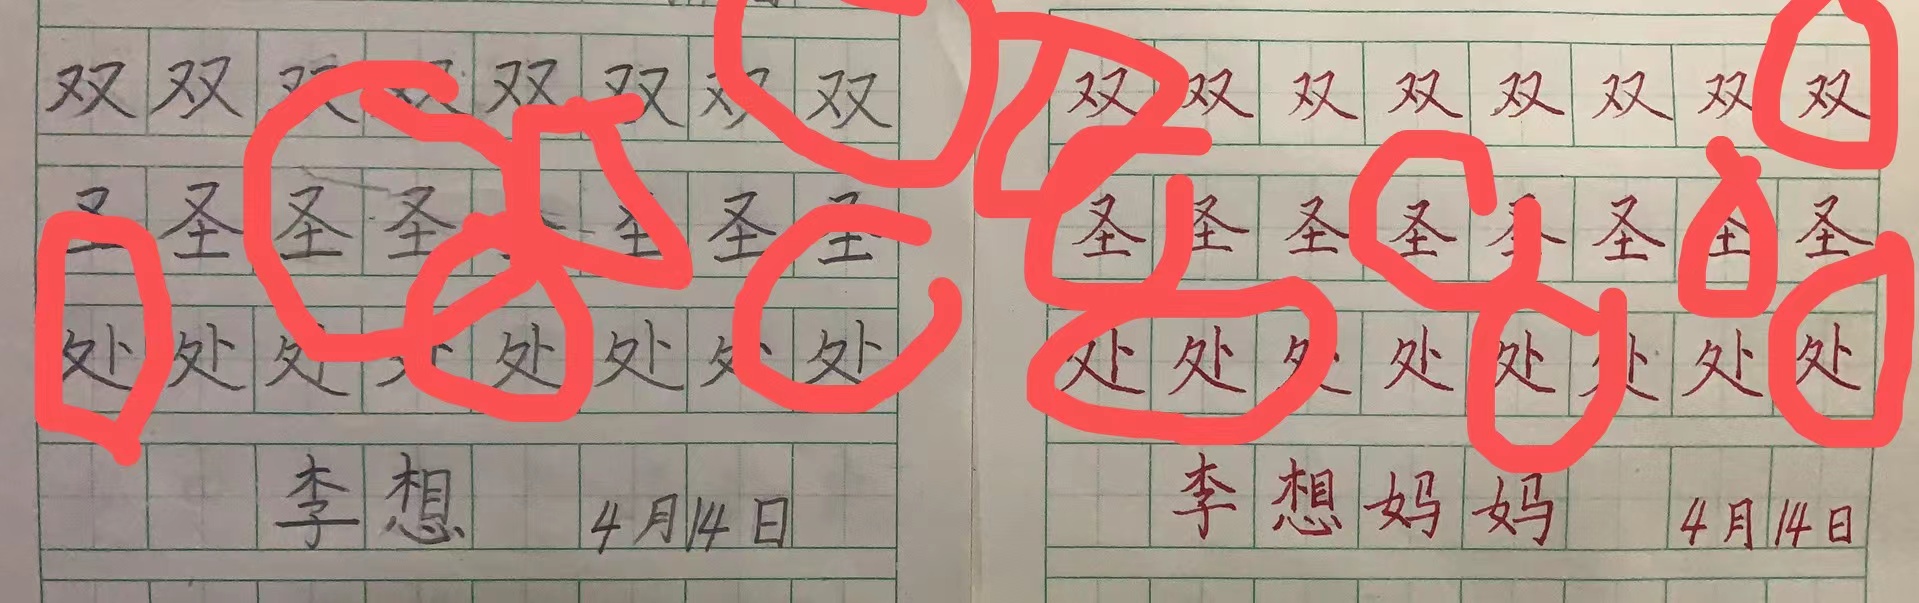 双双双双双双双双
圣圣圣圣圣圣圣
处处处处处处处处
李想 4月14日
双双双双双双双双
圣圣圣圣圣圣圣圣
处处处处处处处处
李想妈妈 4月14日